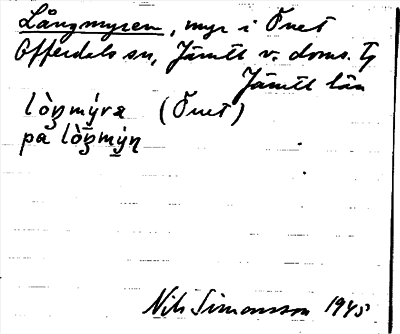 Långmyren, myr i Önet
Offerdals sn, Jämtl v. doms. tg
Jämtl län
lòŋmýra (Önet)
på lòŋmýn
Nils Simonsson 1945